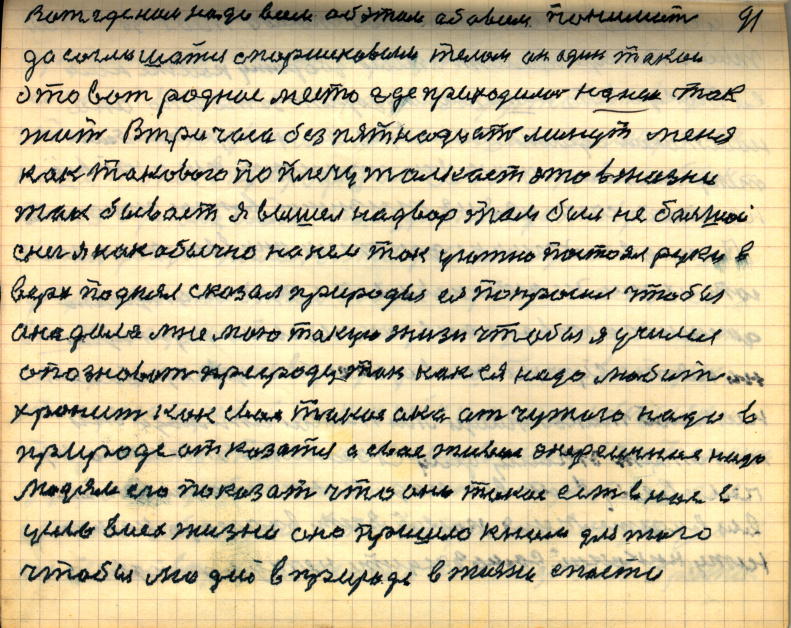 Вот где нам надо всем об этом обо всем понимат 91
до соглашатся с поршековым телом он один такои
Это вот родное место где приходилос каднем так
жит В три часа без пятнадцат минут меня
как такового по плечу толкает это в жизни
так бывает я вышел надвор там был не большой
снег я как обычно на нем так уютно постоял руки в
верх поднял сказал природы ея попросил чтобы
она дала мне мою такую жизн чтобы я учился
опозноват природу так как ея надо любит
хронит как свое такое она от чужого надо в
природе отказатся а свое живое энергичное надо
людям его показат что оно такое ест в нас в
всех жизни оно пришло к нам для того
чтобы людей в природе в жизни спасти